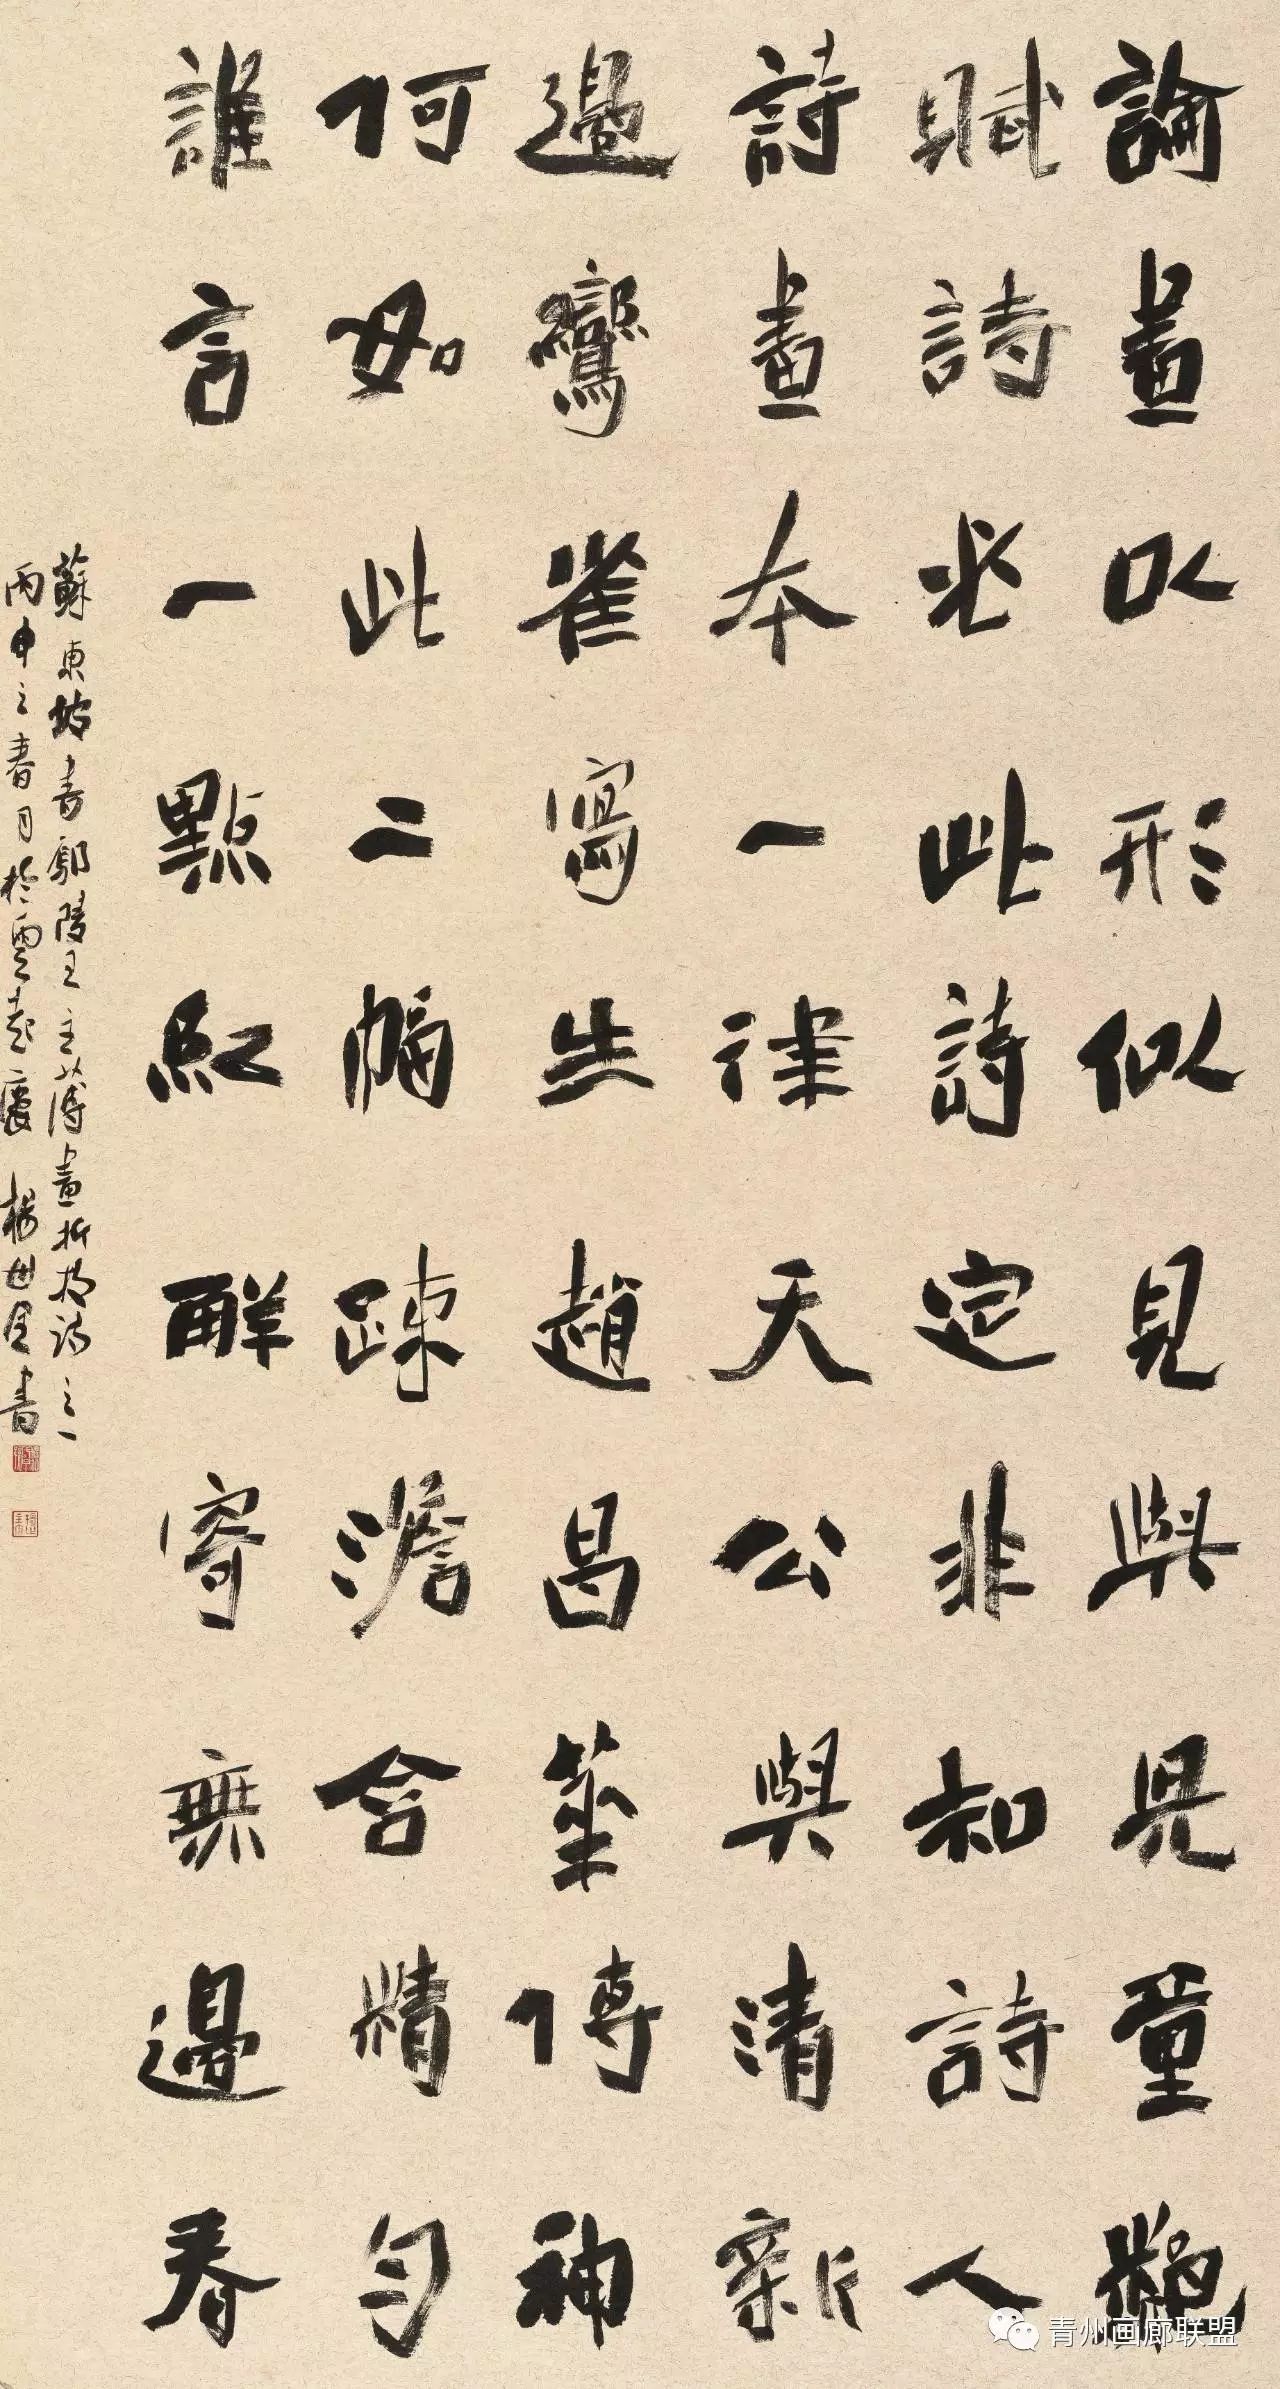 論畫以形似見與兒童鄰
賦詩必此詩定非知詩人
詩畫本一律天公與清新
邊鸞雀寫生趙昌華傳神
何如此二幅疎澹含精勻
誰言一點紅解寄無邊春
蘇東坡書鄢陵王主簿畫折枝詩之一
丙申之春月於雲起 楊書
青州画廊联盟